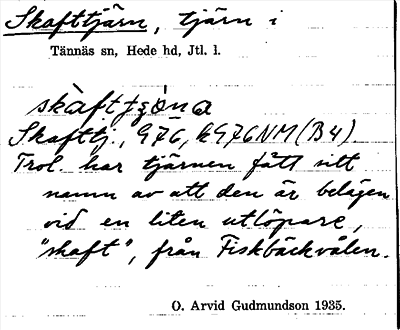 Skafttjärn, tjärn i
Tännäs sn, Hede hd, Jtl. l.
Skafttj., G76, kG76NM(B4)
Trol. har tjärnen fått sitt
namn av att den är belägen
vid en liten utlöpare,
"skaft", från Fiskbäckvålen.
O. Arvid Gudmundson 1935.